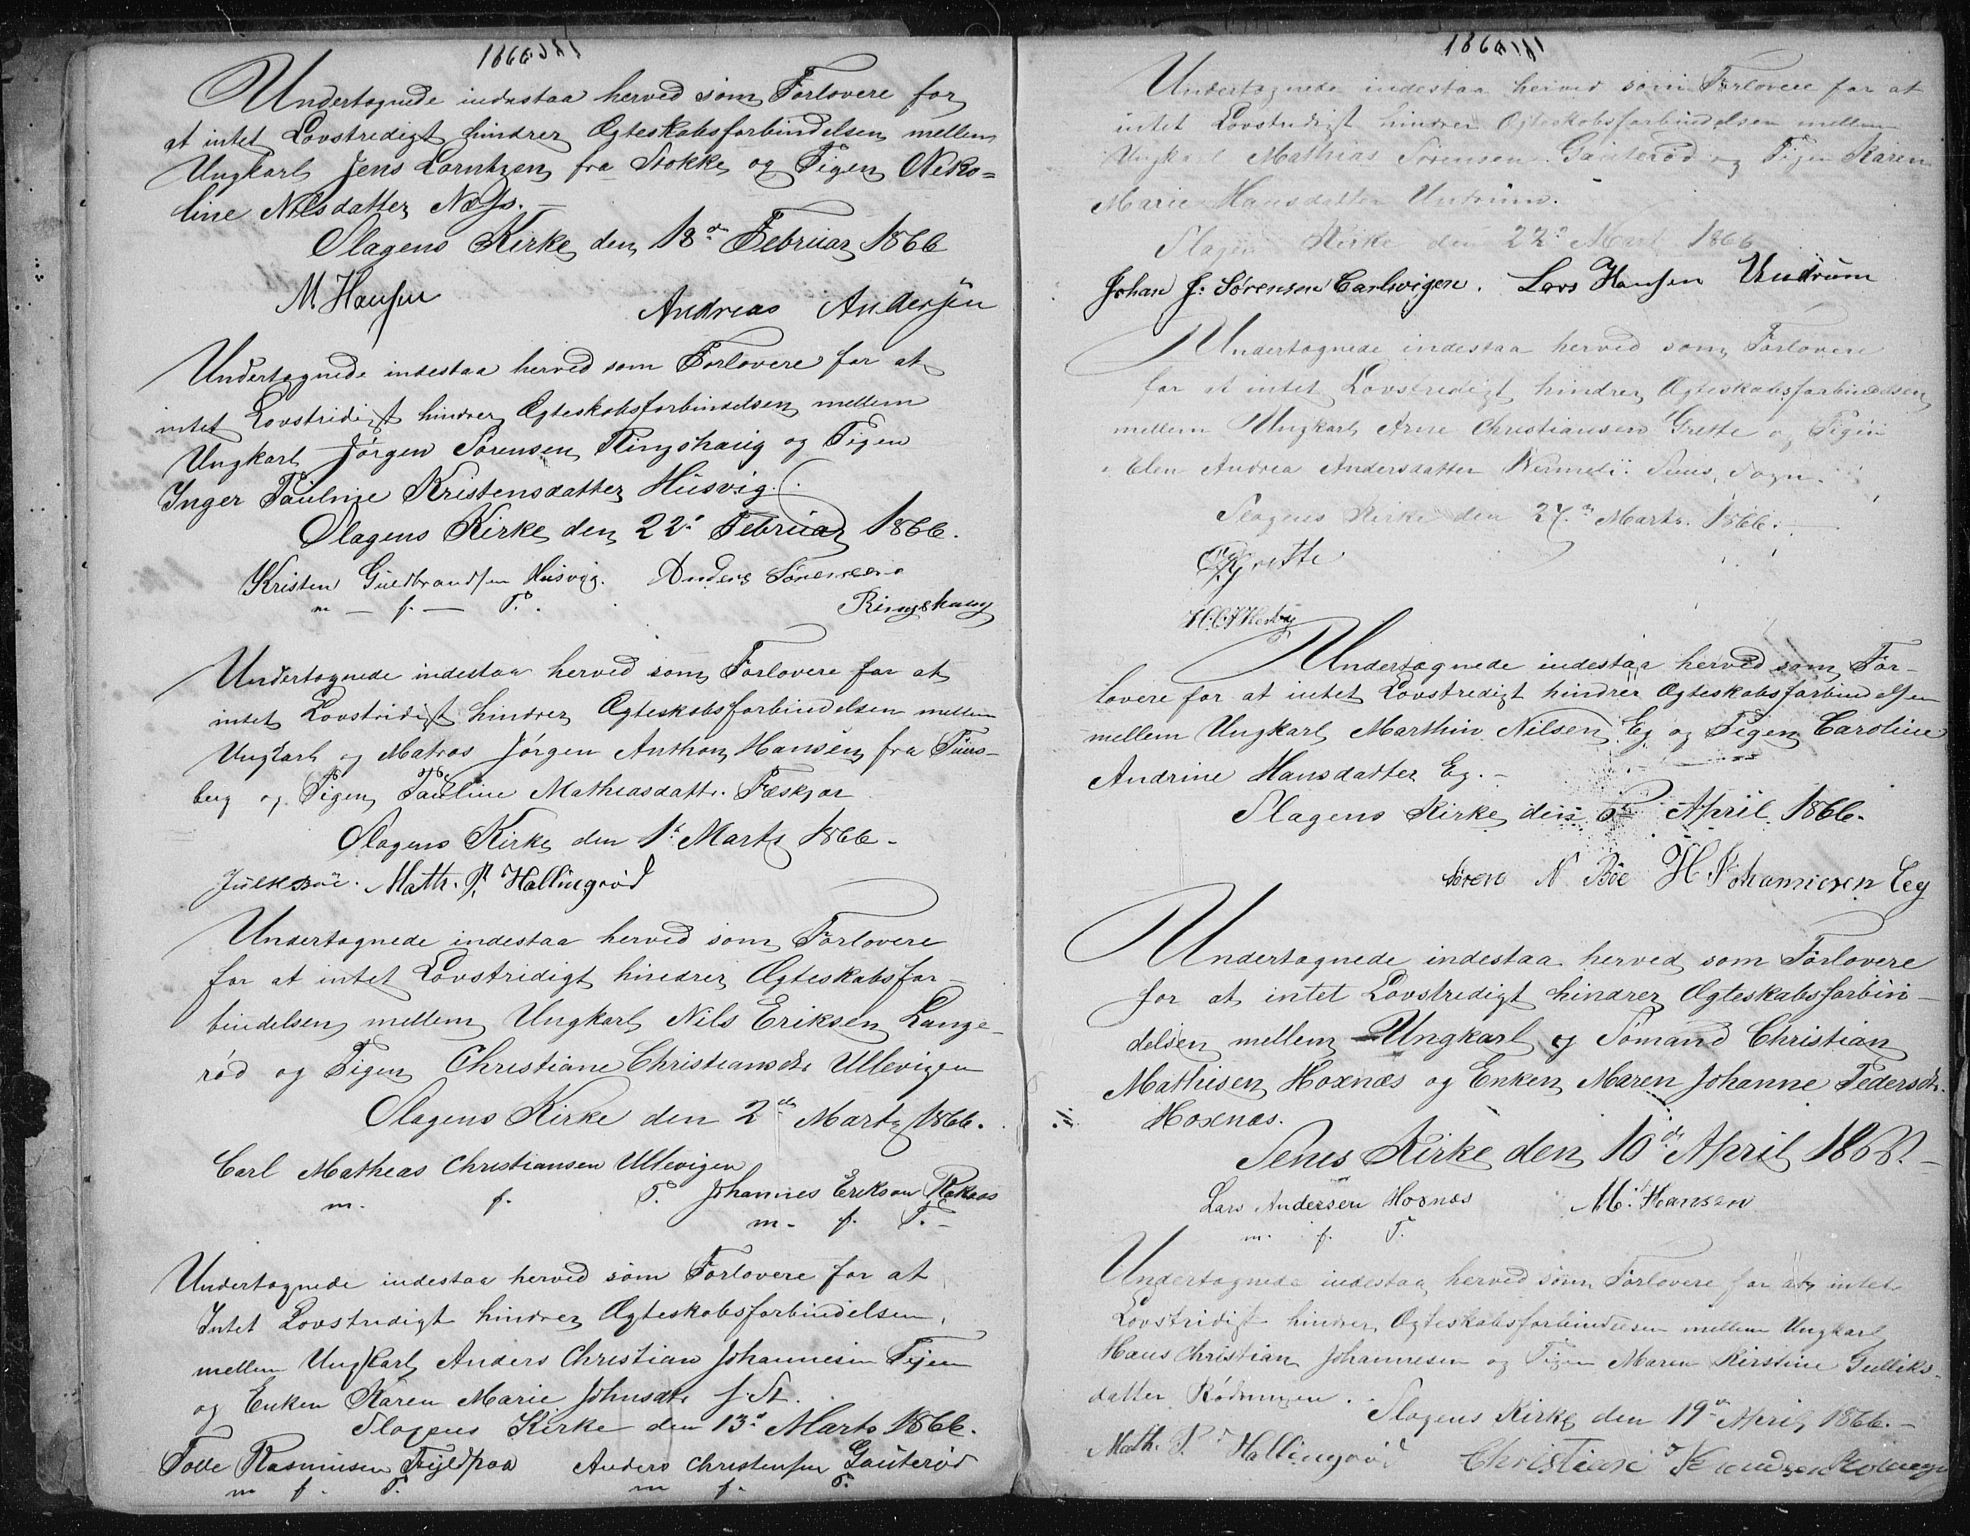 1866
Undertegnede indestaa herved som Forlovere for
at intet Lovstridigt hindrer Ægteskabsforbindelsen mellem
Ungkarl Jens Lorntzen fra Stokke og Pigen Neko=
line Nilsdatter Næs. —
Slagens Kirke den 18de Februar 1866
M Hansen Andreas Andersen
Undertegnede indestaa herved som Forlovere for at
intet Lovstridigt hindrer Ægteskabsforbindelsen mellem
Ungkarl Jørgen Sørensen Ringshaug og Pigen
Inger Pauline Kristensdatter Husvig.
Slagens Kirke den 22d Februar 1866.
Kristen Guldbrandsen Husvig. Anders Sørensen
m — f. — P. Ringshaug
Undertegnede indestaa herved som Forlovere for at
intet Lovstridigt hindrer Ægteskabsforbindelsen mellem
Ungkarl og Matros Jørgen Anthon Hansen fra Tøns-
berg og Pigen Pauline Mathiasdattr. Fæskjær
Slagens Kirke den 1ste Marts 1866 -
Math. P. Hallingrød
Undertegnede indestaa herved som Forlovere
for at intet Lovstridigt hindrer Ægteskabsfor-
bindelsen mellem Ungkarl Nils Eriksen Lange-
rød og Pigen Christiane Christiansdtr Ullevigen
Slagens Kirke den 2den Marts 1866.
Carl Mathias Christiansen Ullevigen
m. f. P. Johannes Erikson Rakaas
m. f. P. -
Undertegnede indestaa herved som Forlovere for at
Intet Lovstridigt hindrer Ægteskabsforbindelsen
mellem Ungkarl Anders Christian Johannesen Tejen
og Enken Karen Marie Johnsdtr
Slagens Kirke den 13d Marts 1866.
Tolle Rasmussen Anders Christensen Gauterød
m f. P. m f. P.
1866
Undertegnede indestaa herved som Forlovere for at
intet Lovstridigt hindrer Ægteskabsforbindelsen mellem
Ungkarl Mathias Sørensen Gauterød og Pigen Karen
Marie Hansdatter Undrum.
Slagens Kirke den 22d Mart 1866
Johan J. Sørensen Carlsvigen. Lars Hansen Undrum
Undertegnede indestaa herved som Forlovere
for at intet Lovstridigt hindrer Ægteskabsforbindelsen
mellem Ungkarl Arne Christiansen Grette og Pigen
Elen Andrea Andersdatter Sems Sogn.
Slagens Kirke den 27de Marts 1866. -
Grette
Undertegnede indestaa herved som For-
lovere for at intet Lovstridigt hindrer Ægteskabsforbindelsen
mellem Ungkarl Marthin Nilsen Eg og Pigen Caroline
Andrine Hansdatter Eg. -
Slagens Kirke den 6te April 1866.
Søren N Bøe H Johannesen Eeg
Undertegnede indestaa herved som Forlovere
for at intet Lovstridigt hindrer Ægteskabsforbin-
delsen mellem Ungkarl og Sømand Christian
Mathisen Hoxnæs og Enken Maren Johanne Pedersdtr.
Hoxnæs.
Sems Kirke den 10de April 1866. -
Lars Andersen Hoxnæs M. Hansen
m. f. P.
Undertegnede indestaa herved som Forlovere for at intet
Lovstridigt hindrer Ægteskabsforbindelsen mellem Ungkarl
Hans Christian Johannesen og Pigen Maren Kirstine Gulliks-
datter Rødningen.
Slagens Kirke den 19de April 1866. -
Math. P. Hallingrød Christian Knudsen